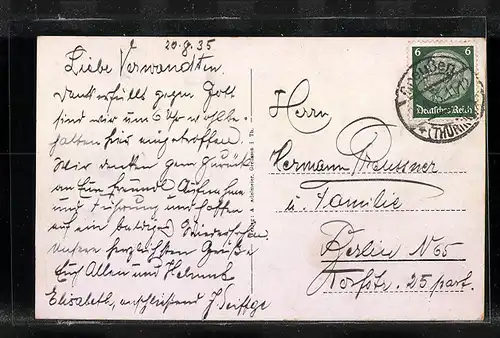 20.8.35
Liebe Verwandten.
Dankerfüllt gegen Gott
sind wir um 6 Uhr wohlbe-
halten hier eingetroffen.
Wir denken gern zurück
an Eure freundl. Aufnahme
und Führung und hoffen
auf ein baldiges Wiedersehen.
Unsere herzlichsten Grüße
Euch Allen und Helmut
Elisabeth, anschließend J.
Herrn
Hermann
u. Familie
Berlin N65
str. 25 part.
6 6
Deutsches Reich
(THÜRING